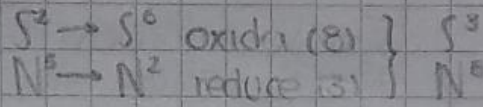 S² → S⁶ oxida (8) } S³
N⁵ → N² reduce (3) } N⁸